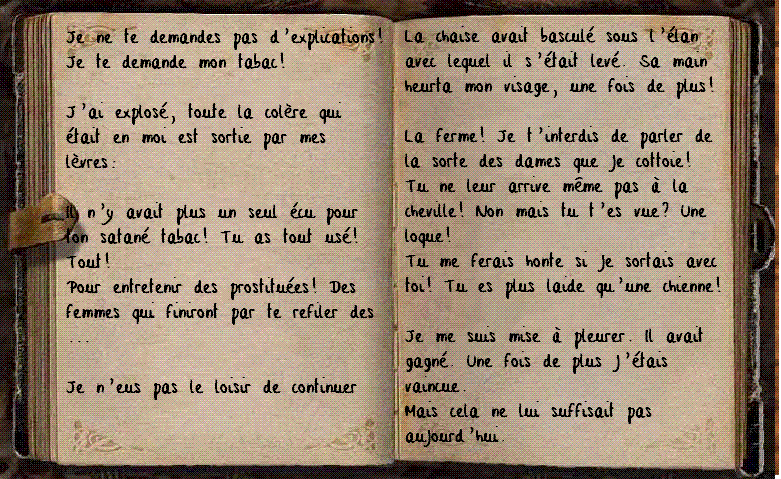 Je ne te demandes pas d'explications!
Je te demande mon tabac!
J'ai explosé, toute la colère qui
était en moi est sortie par mes
lèvres:
Il n'y avait plus un seul écu pour
ton satané tabac! Tu as tout usé!
Tout!
Pour entretenir des prostituées! Des
femmes qui finiront par te refiler des
...
Je n'eus pas le loisir de continuer
La chaise avait basculé sous l'élan
avec lequel il s'était levé. Sa main
heurta mon visage, une fois de plus!
La ferme! Je t'interdis de parler de
la sorte des dames que je cottoie!
Tu ne leur arrive même pas à la
cheville! Non mais tu t'es vue? Une
loque!
Tu me ferais honte si je sortais avec
toi! Tu es plus laide qu'une chienne!
Je me suis mise à pleurer. Il avait
gagné. Une fois de plus j'étais
vaincue.
Mais cela ne lui suffisait pas
aujourd'hui.